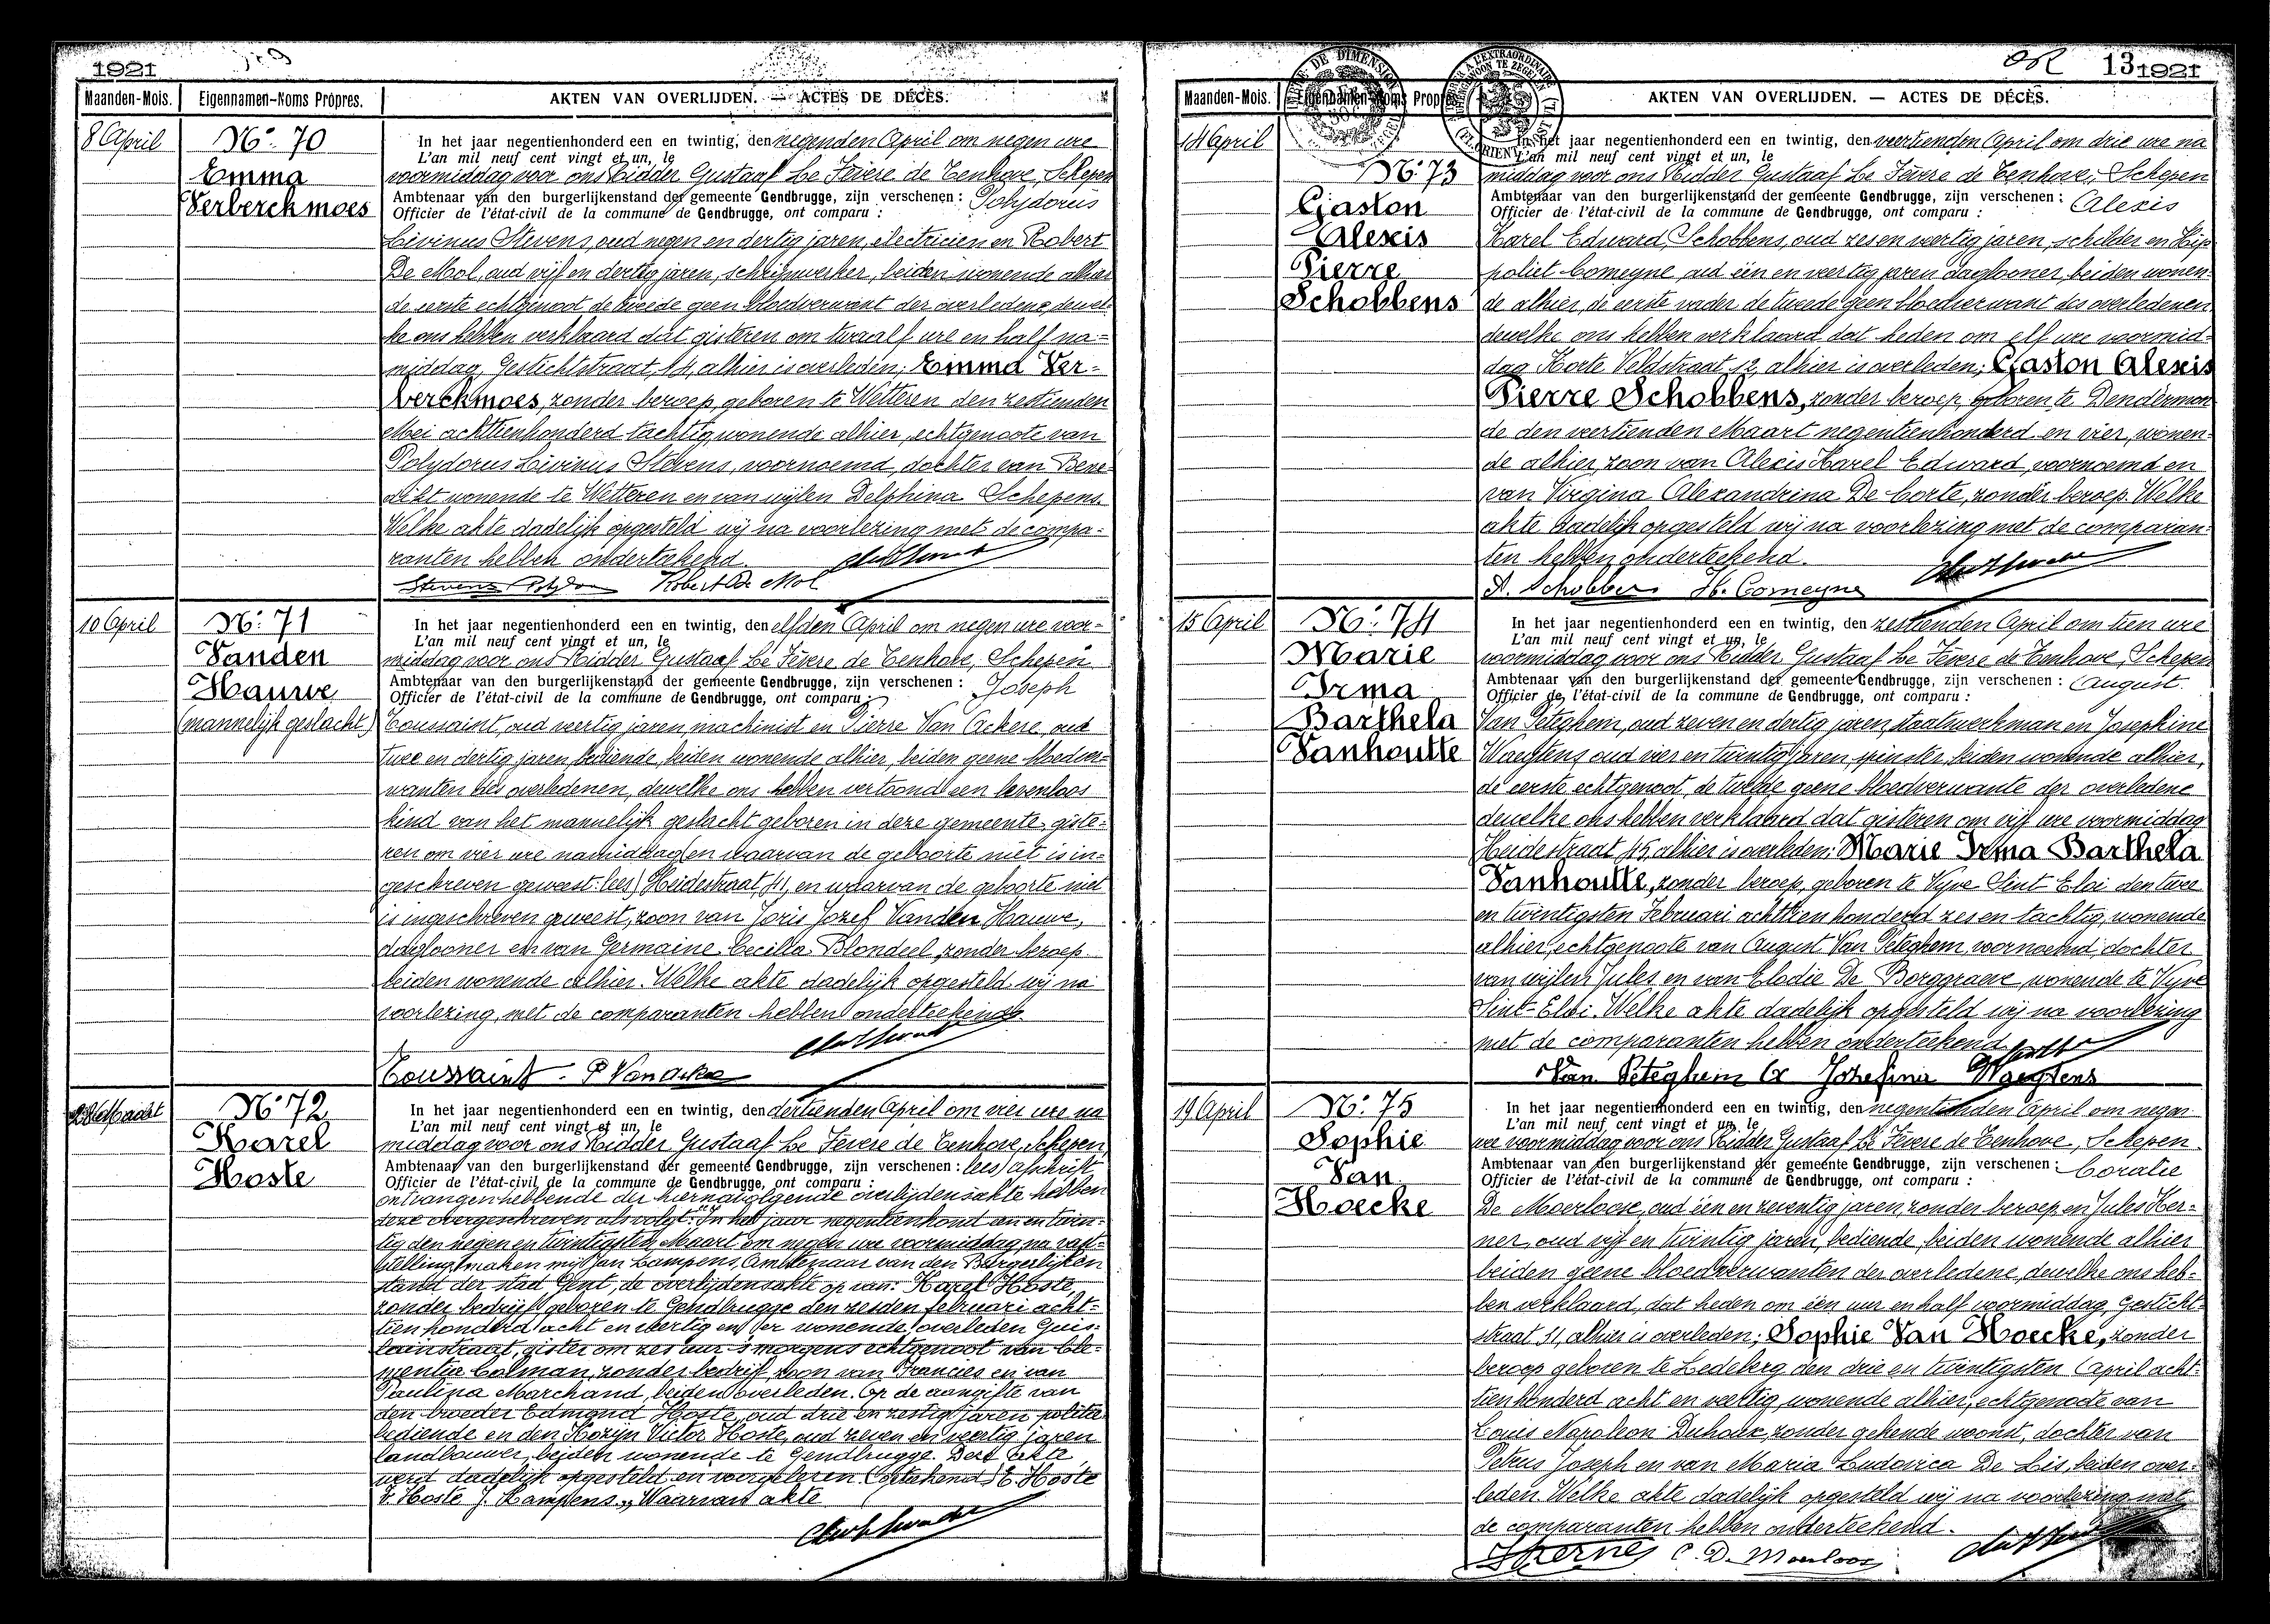 1921
Maanden-Mois. Eigennamen-Noms Propres. AKTEN VAN OVERLIJDEN. — ACTES DE DÉCÈS.
8 April
Nº. 70
Emma
Verberckmoes
In het jaar negentienhonderd een en twintig, den negenden April om negen ure
L'an mil neuf cent vingt et un, le
voormiddag voor ons Ridder Gustaaf Le Fèvere de Tenhove, Schepen
Ambtenaar van den burgerlijkenstand der gemeente Gendbrugge, zijn verschenen : Polydorus
Officier de l'état-civil de la commune de Gendbrugge, ont comparu :
Livinus Stevens, oud negen en dertig jaren, electricien en Robert
De Mol, oud vijf en dertig jaren, schrijnwerker, beiden wonende alhier
de eerste echtgenoot de tweede geen bloedverwant der overledene, dewel-
ke ons hebben verklaard dat gisteren om twaalf ure en half na-
middag, Gestichtstraat, 14, alhier is overleden; Emma Ver-
berckmoes, zonder beroep, geboren te Wetteren den zestienden
Mei achttienhonderd tachtig, wonende alhier, echtgenoote van
Polydorus Livinus Stevens, voornoemd, dochter van Bene-
dikt wonende te Wetteren en van wijlen Delphina Schepens.
Welke akte dadelijk opgesteld wij na voorlezing met de compa-
ranten hebben onderteekend.
Stevens Polydoor Robert De Mol
10 April
Nº. 71
Vanden
Hauwe
(mannelijk geslacht)
In het jaar negentienhonderd een en twintig, den elfden April om negen ure voor-
L'an mil neuf cent vingt et un, le
middag voor ons Ridder Gustaaf Le Fèvere de Tenhove, Schepen
Ambtenaar van den burgerlijkenstand der gemeente Gendbrugge, zijn verschenen : Joseph
Officier de l'état-civil de la commune de Gendbrugge, ont comparu :
Toussaint, oud veertig jaren, machinist en Pierre Van Ackere, oud
twee en dertig jaren, bediende, beiden wonende alhier, beiden geene bloedver-
wanten des overledenen, dewelke ons hebben vertoond een levenloos
kind van het mannelijk geslacht geboren in deze gemeente, giste-
ren om vier ure namiddag (en waarvan de geboorte niet is in-
geschreven geweest: lees) Heidestraat, 41, en waarvan de geboorte niet
is ingeschreven geweest, zoon van Joris Jozef Vanden Hauwe,
daglooner en van Germaine Cecilla Blondeel, zonder beroep
beiden wonende alhier. Welke akte dadelijk opgesteld wij na
voorlezing, met de comparanten hebben onderteekend.
Toussaint P Van Ackere
Nº 72
Karel
Hoste
In het jaar negentienhonderd een en twintig, den dertienden April om vier ure na
L'an mil neuf cent vingt et un, le
middag voor ons Ridder Gustaaf Le Fèvere de Tenhove, Schepen,
Ambtenaar van den burgerlijkenstand der gemeente Gendbrugge, zijn verschenen : lees) afschrift
Officier de l'état-civil de la commune de Gendbrugge, ont comparu :
ontvangen hebbende der hiernavolgende overlijdensakte hebben
deze overgeschreven als volgt: "In het jaar negentienhond een en twin-
tig den negen en twintigsten Maart om negen ure voormiddag, na vast-
stelling, maken mij Jan Lampens, Ambtenaar van den Burgerlijken
stand der stad Gent, de overlijdensakte op van: Karel Hoste,
zonder bedrijf, geboren te Gendbrugge den zesden februari acht-
tien honderd acht en veertig en er wonende, overleden Guis-
lainstraat, gister om zes uur 's morgens echtgenoot van Cle-
mentia Colman, zonder bedrijf, zoon van Francies en van
Paulina Marchand, beiden overleden. Op de aangifte van
den broeder Edmond Hoste, oud drie en zestig jaren politie-
bediende en den Kozijn Victor Hoste, oud zeven en veertig jaren
landbouwer, beiden wonende te Gendbrugge. Deze akte
werd dadelijk opgesteld en voorgelezen. (Geteekend) E. Hoste
V. Hoste J. Lampens., Waarvan akte
13 1921
Maanden-Mois. Eigennamen-Noms Propres. AKTEN VAN OVERLIJDEN. — ACTES DE DÉCÈS.
14 April
Nº. 73
Gaston
Alexis
Pierre
Schobbens
In het jaar negentienhonderd een en twintig, den veertienden April om drie ure na
L'an mil neuf cent vingt et un, le
middag voor ons Ridder Gustaaf Le Fèvere de Tenhove, Schepen
Ambtenaar van den burgerlijkenstand der gemeente Gendbrugge, zijn verschenen : Alexis
Officier de l'état-civil de la commune de Gendbrugge, ont comparu :
Karel Edward Schobbens, oud zes en veertig jaren, schilder en Hip
poliet Comeyne, oud één en veertig jaren daglooner, beiden wonen-
de alhier, de eerste vader de tweede geen bloedverwant des overledenen,
dewelke ons hebben verklaard dat heden om elf ure voormid-
dag Korte Veldstraat 12, alhier is overleden; Gaston Alexis
Pierre Schobbens, zonder beroep, geboren te Dendermon-
de den veertienden Maart negentienhonderd en vier, wonen-
de alhier, zoon van Alexis Karel Edward, voornoemd en
van Virgina Alexandrina De Corte, zonder beroep. Welke
akte dadelijk opgesteld wij na voorlezing met de comparan-
ten hebben onderteekend.
A. Schobbens H. Comeyne
15 April
Nº. 74
Marie
Irma
Barthela
Vanhoutte
In het jaar negentienhonderd een en twintig, den zestienden April om tien ure
L'an mil neuf cent vingt et un, le
voormiddag voor ons Ridder Gustaaf Le Fèvere de Tenhove, Schepen
Ambtenaar van den burgerlijkenstand der gemeente Gendbrugge, zijn verschenen : August
Officier de l'état-civil de la commune de Gendbrugge, ont comparu :
Van Peteghem, oud zeven en dertig jaren, staatwerkman en Josephine
Waegtens, oud vier en twintig jaren, spinster, beiden wonende alhier,
de eerste echtgenoot, de tweede geene bloedverwante der overledene
dewelke ons hebben verklaard dat gisteren om vijf ure voormiddag
Heidestraat 45, alhier is overleden; Marie Irma Barthela
Vanhoutte, zonder beroep, geboren te Vyve Sint Eloi den twee
en twintigsten Februari achttien honderd zes en tachtig, wonende
alhier, echtgenoote van August Van Peteghem, voornoemd, dochter
van wijlen Jules en van Elodie De Borggraeve wonende te Vyve
Sint-Eloi. Welke akte dadelijk opgesteld wij na voorlezing
met de comparanten hebben onderteekend.
Van Peteghem A Jozefina Waegtens
19 April
Nº. 75
Sophie
Van
Hoecke
In het jaar negentienhonderd een en twintig, den negentienden April om negen
L'an mil neuf cent vingt et un, le
ure voormiddag voor ons Ridder Gustaaf Le Fèvere de Tenhove, Schepen
Ambtenaar van den burgerlijkenstand der gemeente Gendbrugge, zijn verschenen : Coralie
Officier de l'état-civil de la commune de Gendbrugge, ont comparu :
De Moerloose, oud één en zeventig jaren, zonder beroep en Jules Her-
ner, oud vijf en twintig jaren, bediende, beiden wonende alhier
beiden geene bloedverwanten der overledene, dewelke ons heb-
ben verklaard, dat heden om één uur en half voormiddag, Gesticht-
straat 51, alhier is overleden; Sophie Van Hoecke, zonder
beroep geboren te Ledeberg den drie en twintigsten April acht-
tienhonderd acht en veertig, wonende alhier, echtgenoote van
Louis Napoleon Duhoux, zonder gekende woonst, dochter van
Petrus Joseph en van Maria Ludovica De Lis, beiden over-
leden. Welke akte dadelijk opgesteld wij na voorlezing met
de comparanten hebben onderteekend.
C. D. Moerloos